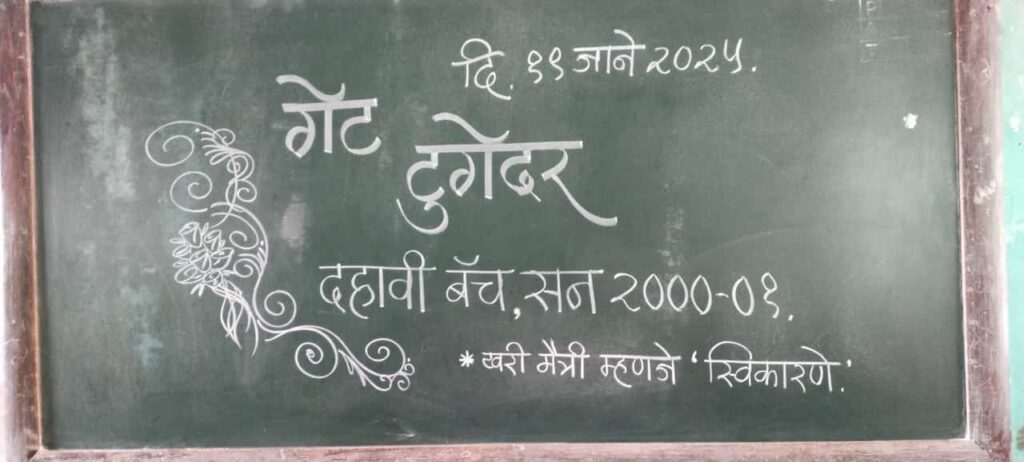 दि. १९ जाने २०२५.
गेट
टुगेदर
दहावी बॅच, सन २०००-०१.
* खरी मैत्री म्हणजे ‘स्विकारणे.’